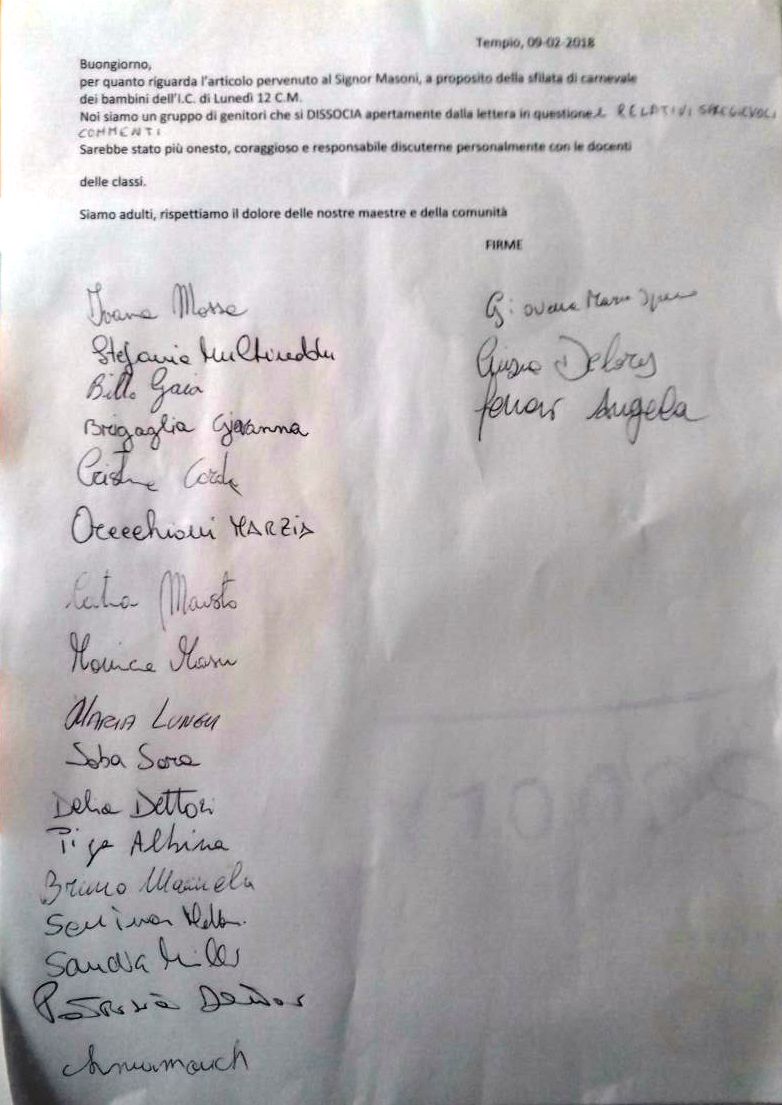 Tempio, 09-02-2018
Buongiorno,
per quanto riguarda l'articolo pervenuto al Signor Masoni, a proposito della sfilata di carnevale
dei bambini dell'I.C. di Lunedì 12 C.M.
Noi siamo un gruppo di genitori che si DISSOCIA apertamente dalla lettera in questione E RELATIVI SPREGIEVOLI
COMMENTI
Sarebbe stato più onesto, coraggioso e responsabile discuterne personalmente con le docenti
delle classi.
Siamo adulti, rispettiamo il dolore delle nostre maestre e della comunità
FIRME
Ivana Mossa
Stefania Multineddu
Gaia
Brigaglia Giovanna
Orecchioni MARZIA
Monica Masu
MARIA LUNGU
Soba Sara
Delia Dettori
Piga Albina
Bruno Manuela
Sandra
Giovanna Maria
Delores
Angela